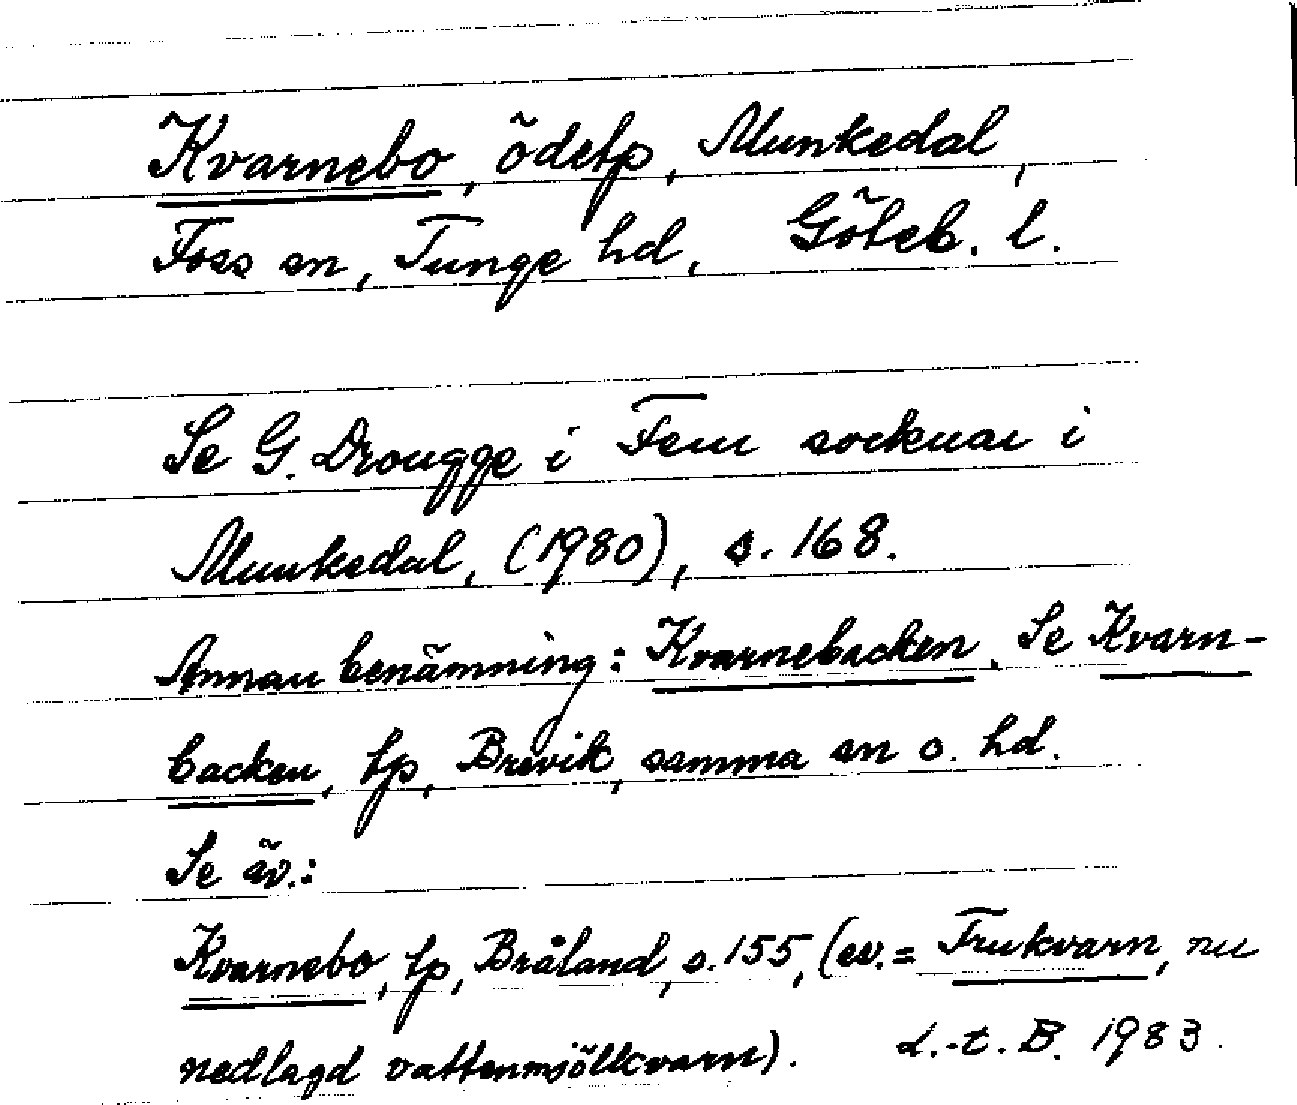 Kvarnebo, ödetp, Munkedal,
Foss sn, Tunge hd, Göteb. l.
Se G. Drougge i Fem socknar i
Munkedal, (1980), s. 168.
Annan benämning: Kvarnebacken. Se Kvarn-
backen, tp, Brevik, samma sn o. hd.
Se äv.:
Kvarnebo, tp, Bråland, s. 155, (ev. = Frukvarn, nu
nedlagd vattenmjölkvarn). L.-t. B. 1983.